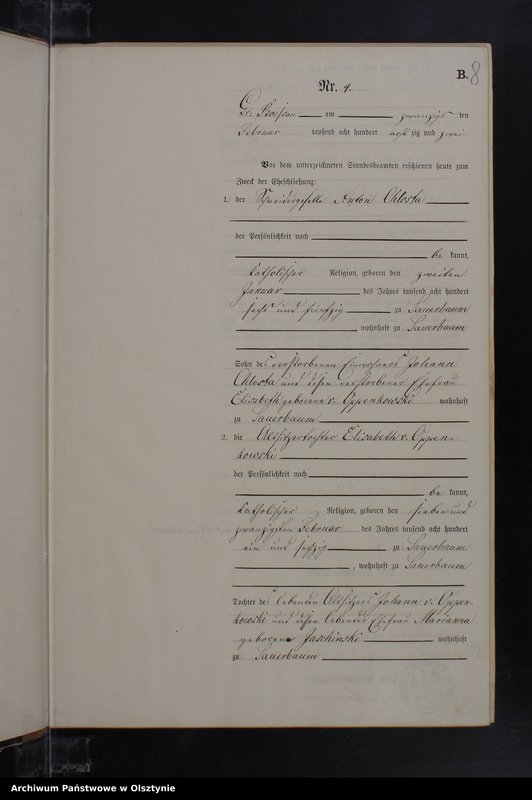 B. 8
Nr. 4.
Gr. Boessau am zwanzigsten
Februar tausend acht hundert achtzig und zwei
Vor dem unterzeichneten Standesbeamten erschienen heute zum
Zweck der Eheschließung:
1. der Schneidergeselle Anton Chlosta
der Persönlichkeit nach
bekannt,
katholischer Religion, geboren den zweiten
Januar des Jahres tausend acht hundert
sechs und fünfzig zu Sauerbaum
, wohnhaft zu Sauerbaum
Sohn des verstorbenen Einwohners Johann
Chlosta und dessen verstorbener Ehefrau
Elisabeth geborene v. Oppenkowski wohnhaft
zu Sauerbaum
2. die Altsitzertochter Elisabeth v. Oppen-
kowski
der Persönlichkeit nach
bekannt,
katholischer Religion, geboren den sieben und
zwanzigsten Februar des Jahres tausend acht hundert
ein und sechzig zu Sauerbaum
, wohnhaft zu Sauerbaum
Tochter des lebenden Altsitzers Johann v. Oppen-
kowski und dessen lebender Ehefrau Marianna
geborene Jaschinski wohnhaft
zu Sauerbaum
Archiwum Państwowe w Olsztynie